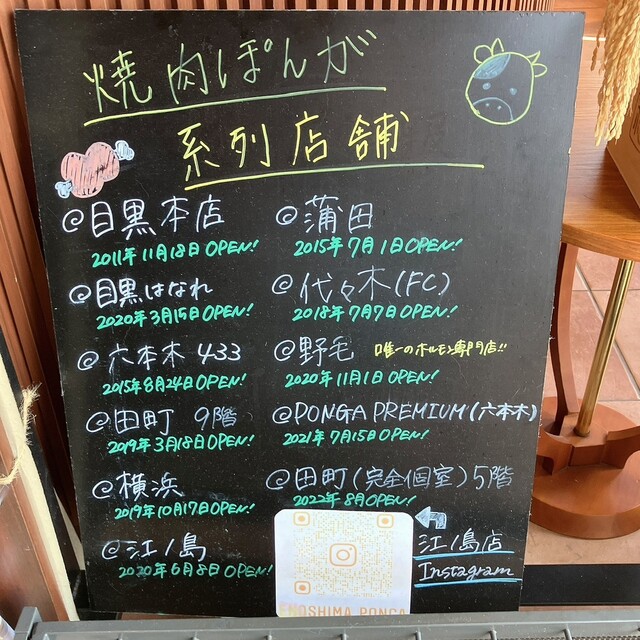 焼肉ぽんが
系列店舗
@目黒本店
2011年11月18日OPEN!
@目黒はなれ
2020年3月15日OPEN!
@六本木433
2015年8月24日OPEN!
@田町 9階
2019年3月18日OPEN!
@横浜
2019年10月17日OPEN!
@江ノ島
2020年6月8日OPEN!
@蒲田
2015年7月1日OPEN!
@代々木(FC)
2018年7月7日OPEN!
@野毛 唯一のホルモン専門店!!
2020年11月1日OPEN!
@PONGA PREMIUM(六本木)
2021年7月15日OPEN!
@田町(完全個室)5階
2022年8月OPEN!
江ノ島店
Instagram
ENOSHIMA_PONGA